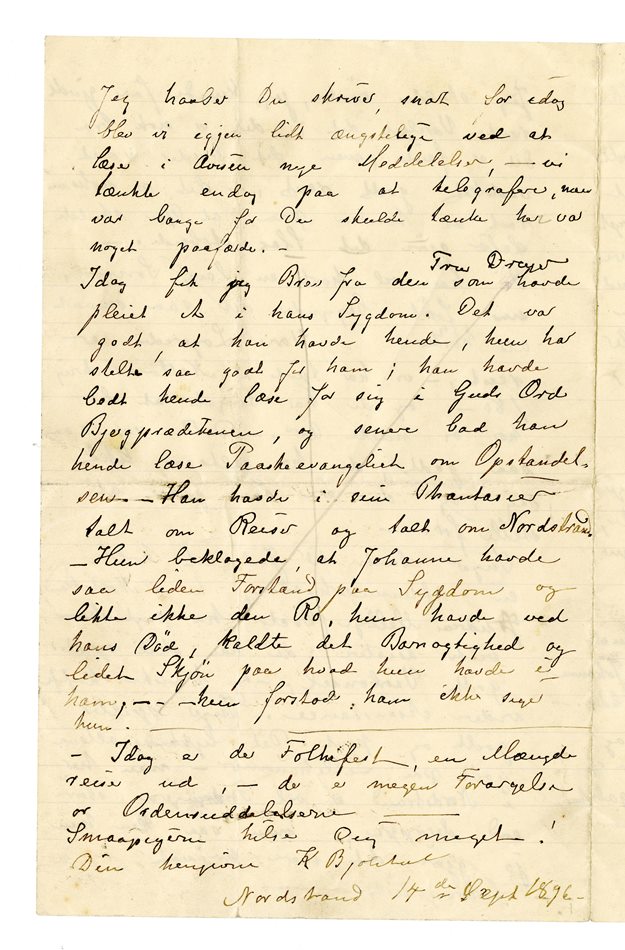 Jeg haaber Du skriver snart for idag
blev vi igjen lidt ængstelige ved at
læse i Avisen nye Meddelelser, — vi
tænkte endog paa at telegrafere, men
var bange for Du skulde tænke her var
noget paafærde. —
Idag fik jeg Brev fra den Fru Dreyer som havde
pleiet A i hans Sygdom. Det var
godt, at han havde hende, hun har
stelte saa godt for ham; han havde
bedt hende læse for sig i Guds Ord
Bjergprædikenen, og senere bad han
hende læse Paaskeevangeliet om Opstandel-
sen — Han havde i sine Phantasier
talt om Reiser og talt om Nordstrand.
— Hun beklagede, at Johanne havde
saa liden Forstand paa Sygdom og
likte ikke den Ro, hun havde ved
hans Død, kaldte det Barnagtighed og
lidet Skjøn paa hvad hun havde i
ham, — — — hun forstod ham ikke siger
hun. —
— Idag er der Folkefest, en Mængde
reise ud, — der er megen Forargelse
over Ordensuddelelserne —
Smaapigerne hilse Dig meget!
Din hengivne K
Nordstrand 14de Sept 1896 —